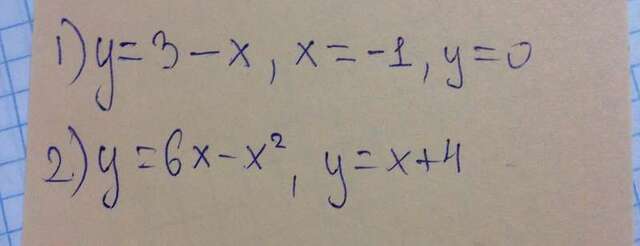 1) y = 3 - x, x = -1, y = 0
2) y = 6x - x², y = x + 4